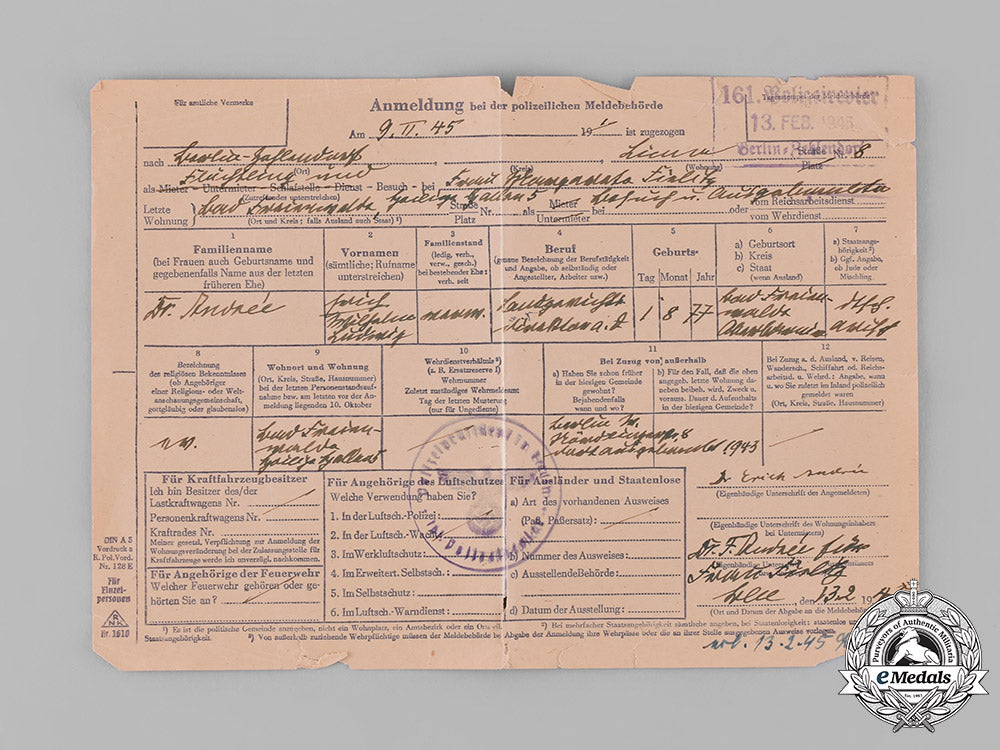 Für amtliche Vermerke
Anmeldung bei der polizeilichen Meldebehörde
161. Polizeirevier
Tagesstempel der Meldebehörde
13. FEB. 1945
Berlin-Zehlendorf
Am 9. II. 45 19 ist zugezogen
nach Berlin-Zehlendorf Straße Nr. 8
(Ort) (Kreis) (Wohnung) Platz
Flüchtling und
als Mieter - Untermieter - Schlafstelle - Dienst - Besuch - bei Frau
(Zutreffendes unterstreichen)
Letzte Wohnung Bad Freienwalde Heilige Hallen 5 Straße Platz Nr. als Mieter Untermieter bei Besuch u. oder vom Reichsarbeitsdienst vom Wehrdienst
(Ort und Kreis; falls Ausland auch Staat) ¹)
1
Familienname
(bei Frauen auch Geburtsname und
gegebenenfalls Name aus der letzten
früheren Ehe)
2
Vornamen
(sämtliche; Rufname
unterstreichen)
3
Familienstand
(ledig, verh.,
verw., gesch.)
bei bestehender Ehe:
verh. seit
4
Beruf
(genaue Bezeichnung der Berufstätigkeit
und Angabe, ob selbständig oder
Angestellter, Arbeiter usw.)
5
Geburts-
Tag Monat Jahr
6
a) Geburtsort
b) Kreis
c) Staat
(wenn Ausland)
7
a) Staatsange-
hörigkeit ²)
b) Ggf. Angabe,
ob Jude oder
Mischling.
Dr. Andrée
Erich
Wilhelm
Ludwig
Landgerichts
direktor a. D
1 8 77
Bad Freien-
walde
Oberbarnim
dtsch.
arisch
8
Bezeichnung
des religiösen Bekenntnisses
(ob Angehöriger
einer Religions- oder Welt-
anschauungsgemeinschaft,
gottgläubig oder glaubenslos)
9
Wohnort und Wohnung
(Ort, Kreis, Straße, Hausnummer)
bei der letzten Personenstandsauf-
nahme bzw. am letzten vor der An-
meldung liegenden 10. Oktober
10
Wehrdienstverhältnis ³)
(z. B. Ersatzreserve I)
Wehrnummer
Zuletzt zuständiges Wehrmeldeamt
Tag der letzten Musterung
(nur für Ungediente)
11
Bei Zuzug von außerhalb
a) Haben Sie schon früher
in der hiesigen Gemeinde
gewohnt?
Bejahendenfalls
wann und wo?
b) Für den Fall, daß die oben
angegeb. letzte Wohnung da-
neben beibeh. wird. Zweck u.
vorauss. Dauer d. Aufenthalts
in der hiesigen Gemeinde?
12
Bei Zuzug a. d. Ausland, v. Reisen,
Wandersch., Schiffahrt od. Reichs-
arbeitsd. u. Wehrd.: Angabe, wann
u. wo Sie zuletzt im Inland polizeilich
gemeldet waren
(Ort, Kreis, Straße, Hausnummer)
ev.
Bad Freien-
walde
Heilige Hallen 5
Berlin W.
8
1943
Für Kraftfahrzeugbesitzer
Ich bin Besitzer des/der
Lastkraftwagens Nr.
Personenkraftwagens Nr.
Kraftrades Nr.
Meiner gesetzl. Verpflichtung zur Anmeldung der
Wohnungsveränderung bei der Zulassungsstelle für
Kraftfahrzeuge werde ich unverzügl. nachkommen.
Für Angehörige der Feuerwehr
Welcher Feuerwehr gehören oder ge-
hörten Sie an?
Für Angehörige des Luftschutzes
Welche Verwendung haben Sie?
1. In der Luftsch.-Polizei:
2. In der Luftsch.-Wacht:
3. Im Werkluftschutz:
4. Im Erweitert. Selbstsch.:
5. Im Selbstschutz:
6. Im Luftsch.-Warndienst:
Für Ausländer und Staatenlose
a) Art des vorhandenen Ausweises
(Paß, Paßersatz):
b) Nummer des Ausweises:
c) Ausstellende Behörde:
d) Datum der Ausstellung:
Dr Erich Andrée
(Eigenhändige Unterschrift des Angemeldeten)
(Eigenhändige Unterschrift des Wohnungsinhabers
bei Untermietern)
Dr. F. Andrée für
Frau
den 13.2 19
(Ort und Datum der Abgabe an die Meldebehörde)
DIN A 5
Vordruck a
R. Pol. Vord.
Nr. 128 E
Für
Einzel-
personen
RNK
Nr. 1610
¹) Es ist die politische Gemeinde anzugeben, nicht ein Wohnplatz, ein Amtsbezirk oder ein Ortsteil.
²) Bei mehrfacher Staatsangehörigkeit sämtliche angeben, bei Staatenlosigkeit: staatenlos und
Staatsangehörigkeit. ³) Von außerhalb zuziehende Wehrpflichtige müssen der Meldebehörde bei Abgabe der Anmeldung ihre Wehrpässe oder die an ihrer Stelle ausgegebenen Ausweise vorlegen.
13.2.45
Purveyors of Authentic Militaria
eMedals